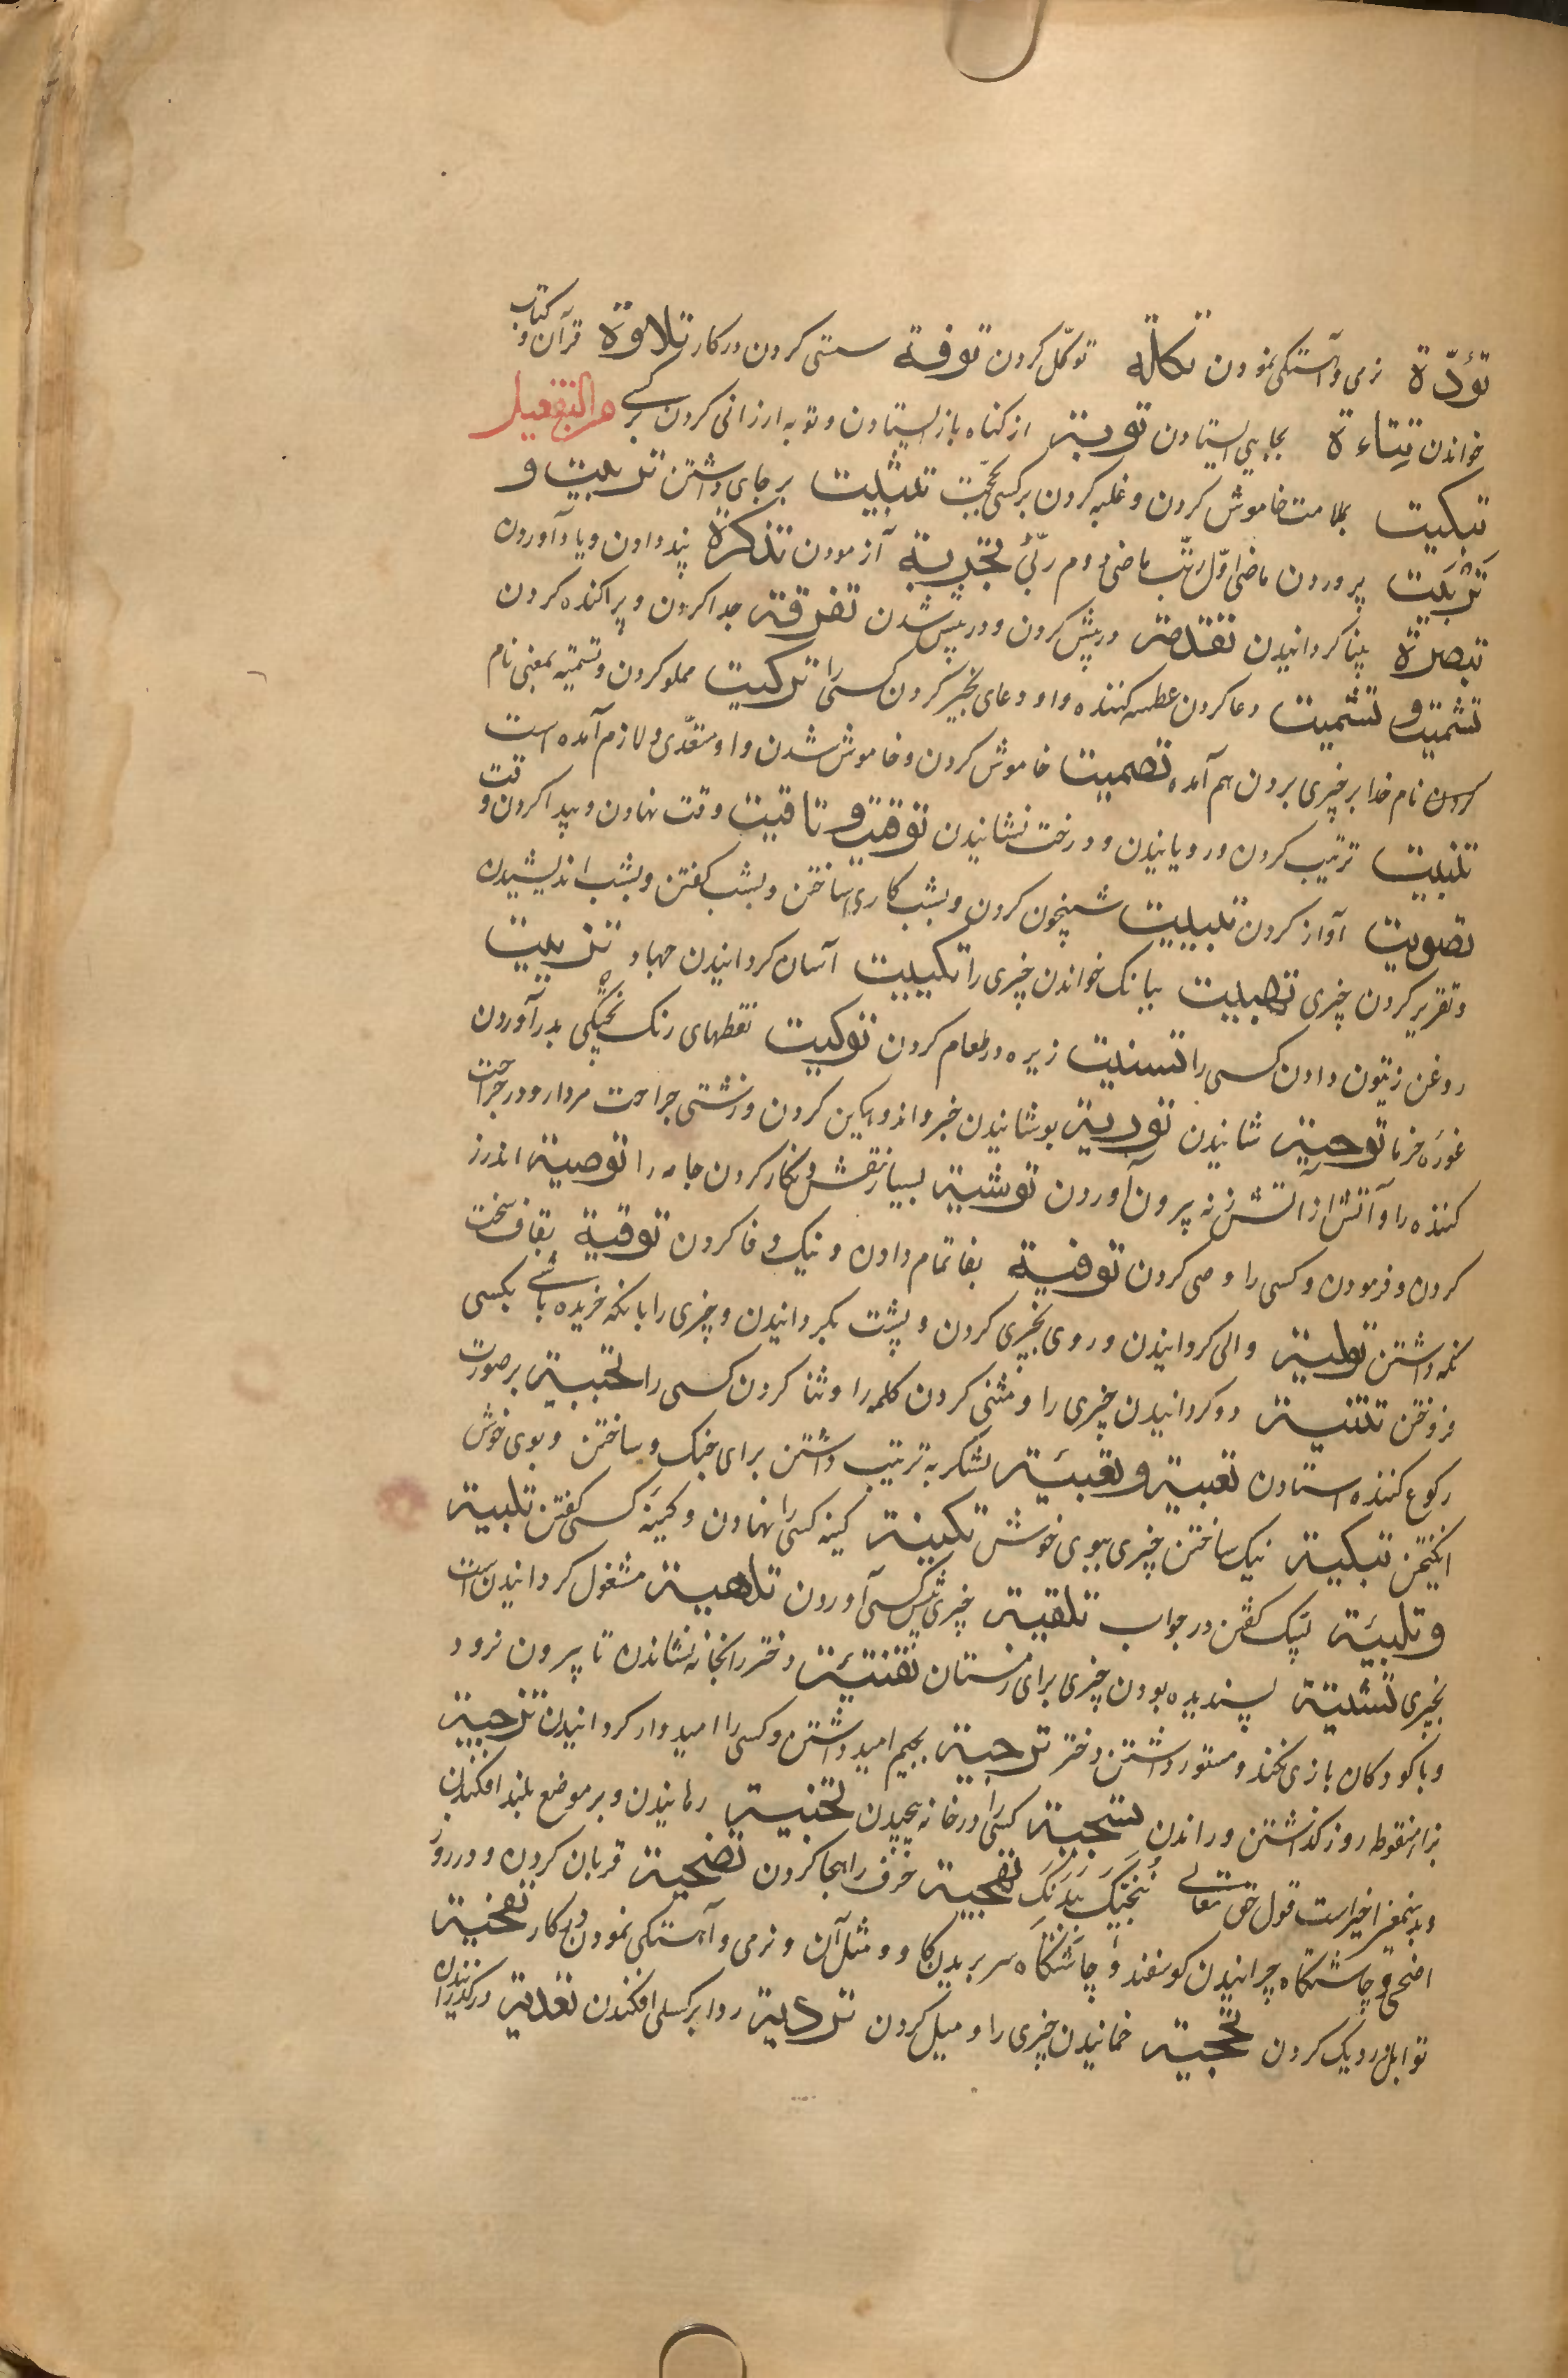 تؤدّة نرمی و آهستکی نمودن تکالة توکّل کردن توفة سستی کردن در کار تلاوة قرآن و کتاب
خواندن تِتاءة بجایی ایستادن توبة از کناه باز ایستادن و توبه ارزانی کردن بر کسے من التفعیل
تبکیت بملامت خاموش کردن و غلبه کردن بر کسی بحجّت تثبیت بر جای داشتن تربیت و
تَربَیت پروردن ماضی اوّل ربّت ماضی دوم ربّیٰ تجربة آزمودن تذکرة پند دادن و یاد آوردن
تبصرة بینا کردانیدن تقدمة در پیش کردن و در پیش شدن تفرقة جدا کردن و پراکنده کردن
تشمیت و تسمیت دعا کردن عطسه کننده و او دعای بخیر کردن کسی را تزکیت مملو کردن و تسمیه بمعنی نام
کردن نام خدا بر چیزی بردن هم آمده تصمیت خاموش کردن و خاموش شدن و او متعدّی و لازم آمده است
تنبیت ترتیب کردن و رویانیدن و درخت نشانیدن توقیت و تاقیت وقت نهادن و پیدا کردن وقت
تصویت آواز کردن تبییت شبیخون کردن و بشب کاری ساختن و بشب کفتن و بشب اندیشیدن
و تقریر کردن چیزی تهییت ببانک خواندن چیزی را تکییت آسان کردانیدن جهاد تزییت
روغن زیتون دادن کسی را تسنیت زیره در طعام کردن توکیت نقطهای رنک پختکی بدر آوردن
غوره خرما توحیة شتانیدن توریة پوشانیدن خبر و اندوهکین کردن و زشتی جراحت مردار و در جراحت
کننده را و آتش از آتش زنه بیرون آوردن توشیة بسیار نقش و نکار کردن جامه را توصیة اندرز
کردن و فرمودن و کسی را وصی کردن توفیة بفا تمام دادن و نیک وفا کردن توقیة بقاف سخت
نکه داشتن تولیة والی کردانیدن و روی بچیزی کردن و پشت بکردانیدن و چیزی را بانکه خریده باشے بکسی
فروختن تثنیة دو کردانیدن چیزی را و مثنی کردن کلمه را و ثنا کردن کسی را تجبیة بر صورت
رکوع کننده استادن تعبیة و تعبئة لشکر به ترتیب داشتن برای جنک و ساختن و بوی خوش
انکیختن تبکیة نیک ساختن چیزی ببوی خوش تکنیة کنیه کسی را نهادن و کنیه کسی کفتن تلبیة
و تلبئة لبیک کفتن در جواب تلقیة چیزی پیش کسی آوردن تلهیة مشغول کردانیدن است
بچیزی تشتیة پسندیده بودن چیزی برای زمستان تفتیة دختر را بخانه نشاندن تا بیرون نرود
و با کودکان بازی نکند و مستور داشتن دختر ترجیة بجیم امید داشتن و کسی را امیدوار کردانیدن تزجیة
بزا منقوطه روز کذاشتن و راندن تسجیة کسی را در خانه پیچیدن تنجیة رهانیدن و بر موضع بلند افکندن
و بدینمعنی اخیر است قول حق تعالے نُنَجِّیکَ بِبَدَنِکَ تهجیة حرف را هجا کردن تضحیة قربان کردن و در روز
اضحی و چاشتکاه چرانیدن کوسفند و چاشتکاه سر بریدن کاو و مثل آن و نرمی و آهستکی نمودن در کار تفحیة
توابل در دیک کردن تحجیة خمانیدن چیزی را و میل کردن تردیة ردا بر کسی افکندن تعدیة در کذرانیدن